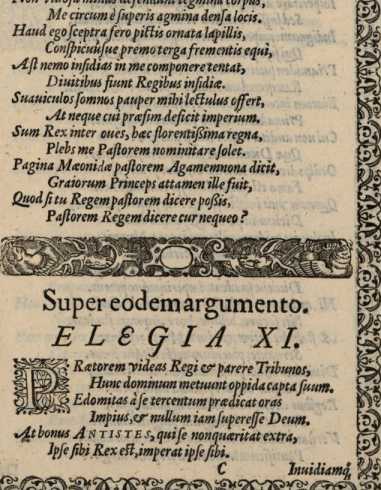 Me circum è superis agmina densa locis.
Haud ego sceptra fero pictis ornata lapillis,
Conspicuiusue premo terga frementis equi,
Ast nemo insidias in me componere tentat,
Diuitibus fiunt Regibus insidiæ.
Suauiculos somnos pauper mihi lectulus offert,
At neque cui præsim deficit imperium.
Sum Rex inter oues, hæc florentissima regna,
Plebs me Pastorem nominitare solet.
Pagina Mæonidæ pastorem Agamemnona dicit,
Graiorum Princeps attamen ille fuit,
Quod si tu Regem pastorem dicere possis,
Pastorem Regem dicere cur nequeo?
Super eodem argumento.
ELEGIA XI.
PRætorem videas Regi & parere Tribunos,
Hunc dominum metuunt oppida capta suum.
Edomitas à se tercentum prædicat oras
Impius, & nullum iam superesse Deum.
At bonus ANTISTES, qui se non quæritat extra,
Ipse sibi Rex est, imperat ipse sibi.
C Inuidiamq́;